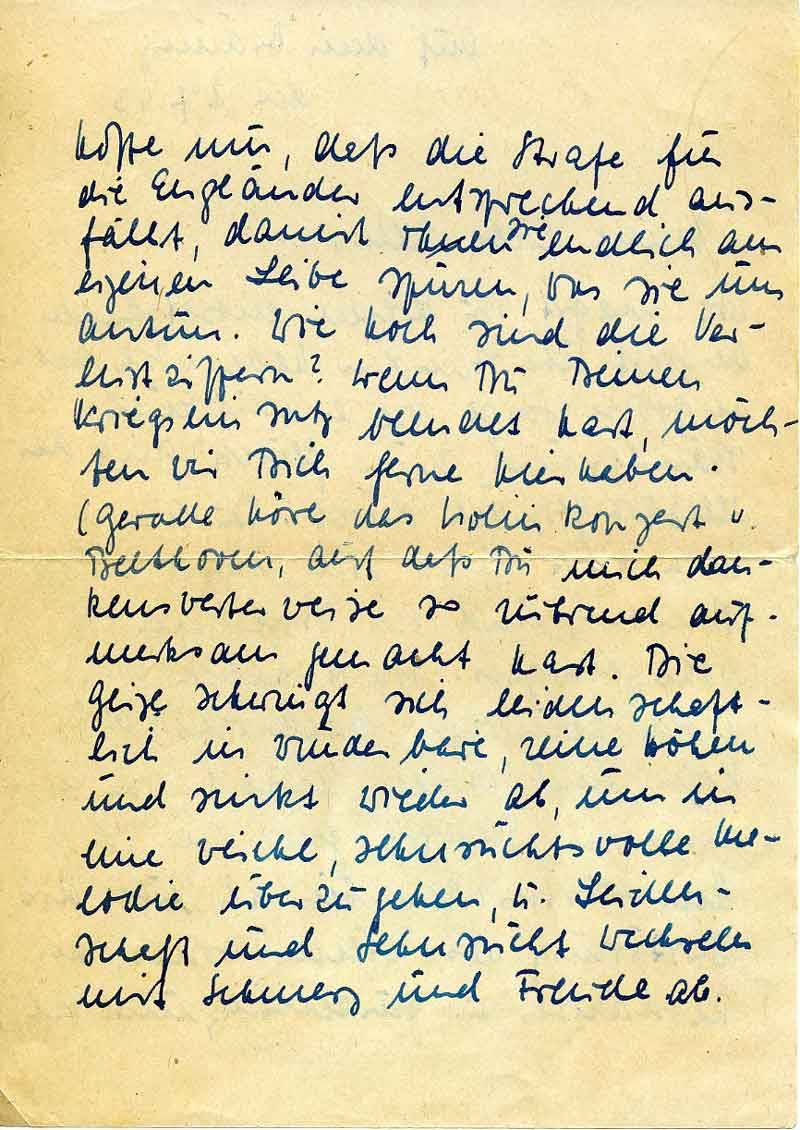 hoffe nur, daß die Strafe für
die Engländer entsprechend aus-
fällt, damit ihnen sie endlich am
eigenen Leibe spüren, was sie uns
antun. Wie hoch sind die Ver-
lustziffern? Wenn Du Deinen
Kriegseinsatz beendet hast, möch-
ten wir Dich gerne hier haben.
(Gerade höre das Violin Konzert v.
Beethoven, auf daß Du mich dan-
kenswerter weise so rührend auf-
merksam gemacht hast. Die
Geige schwingt sich leidenschaft-
lich in wunderbare, reine Höhen
und sinkt wieder ab, um in
eine weiche, sehnsuchtsvolle Me-
lodie überzugehen, u. Leiden-
schaft und Sehnsucht wechseln
mit Schmerz und Freude ab.